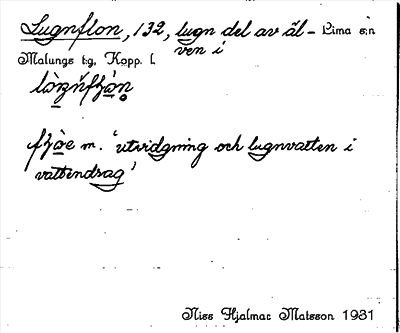 Lugnflon, 132, lugn del av äl- Lima s:n
ven i
Malungs tg, Kopp. l.
fʒòe m. 'utvidgning och lugnvatten i
vattendrag'
Niss Hjalmar Matsson 1931